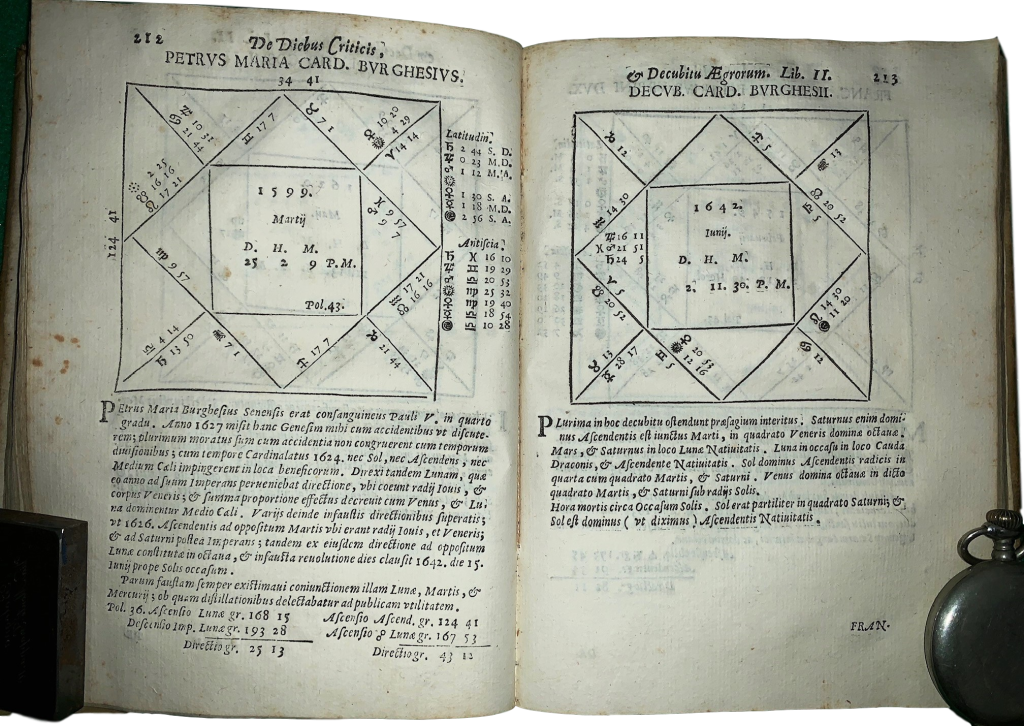 212
De Diebus Criticis,
PETRVS MARIA CARD. BVRGHESIVS.
34 41
♊ 17 7
♉ 7 1
♃ 10 31
♋ 21 44
♀ 10 20
☉ 4 29
♈ 14 14
2 25
☋ 16 16
♌ 17 21
124 41
1599.
Martij
D. H. M.
25 2 9 P.M.
Pol.43.
♓ 9 57
9 7
♍ 9 57
♒ 17 21
☊ 16 16
♎ 4 14
♄ 13 50
♏ 7 1
♐ 17 7
♑ 21 44
Latitudin.
♄ 2 44 S. D.
♃ 0 23 M.D.
♂ 1 12 M.A.
☉
♀ 1 30 S. A.
☿ 1 18 M.D.
☽ 2 56 S. A.
Antiscia.
♄ ♓ 16 10
♃ ♊ 19 29
♂ ♎ 20 53
☉ ♍ 25 32
♀ ♍ 19 40
☿ ♎ 18 54
☽ ♎ 10 28
PEtrus Maria Burghesius Senensis erat consanguineus Pauli V. in quarto
gradu. Anno 1627 misit hanc Genesim mihi cum accidentibus vt discute-
rem; plurimum moratus sum cum accidentia non congruerent cum temporum
diuisionibus; cum tempore Cardinalatus 1624. nec Sol, nec Ascendens, nec
Medium Cæli impingerent in loca beneficorum. Direxi tandem Lunam, quæ
eo anno ad suum Imperans perueniebat directione, vbi coeunt radij Iouis, &
corpus Veneris; & summa proportione effectus decreuit cum Venus, & Lu-
na dominentur Medio Cæli. Varijs deinde infaustis directionibus superatis;
vt 1626. Ascendentis ad oppositum Martis vbi erant radij Iouis, et Veneris;
& ad Saturni postea Imperans; tandem ex eiusdem directione ad oppositum
Lunæ constitutæ in octaua, & infausta reuolutione dies clausit 1642. die 15.
Iunij prope Solis occasum.
Parum faustam semper existimaui coniunctionem illam Lunæ, Martis, &
Mercurij; ob quam distillationibus delectabatur ad publicam vtilitatem.
Pol. 36. Ascensio Lunæ gr. 168 15 Ascensio Ascend. gr. 124 41
Descensio Imp. Lunæ gr. 193 28 Ascensio ☍ Lunæ gr. 167 53
Directio gr. 25 13 Directio gr. 43 12
& Decubitu Ægrorum. Lib. II. 213
DECVB. CARD. BVRGHESII.
♑ 12
♐ 5
♏ 13
☊ 20 52
♎ 5
♒ 14 30
♃ 16 11
♓ ♂ 21 51
♄ 24 5
1642.
Iunij.
D. H. M.
2. 11. 30. P. M.
♈ 5
☋ 20 52
♌ 14 30
☽ 11 20
♉ 13
☿ 28 17
♊ 5
☉ 12 16
♀ 20 53
♋ 12
PLurima in hoc decubitu ostendunt præsagium interitus. Saturnus enim domi-
nus Ascendentis est iunctus Marti, in quadrato Veneris dominæ octauæ.
Mars, & Saturnus in loco Lunæ Natiuitatis. Luna in occasu in loco Cauda
Draconis, & Ascendente Natiuitatis. Sol dominus Ascendentis radicis in
quarta cum quadrato Martis, & Saturni. Venus domina octauæ in dicto
quadrato Martis, & Saturni sub radijs Solis.
Hora mortis circa Occasum Solis. Sol erat partiliter in quadrato Saturni; &
Sol est dominus ( vt diximus ) Ascendentis Natiuitatis.
FRAN-